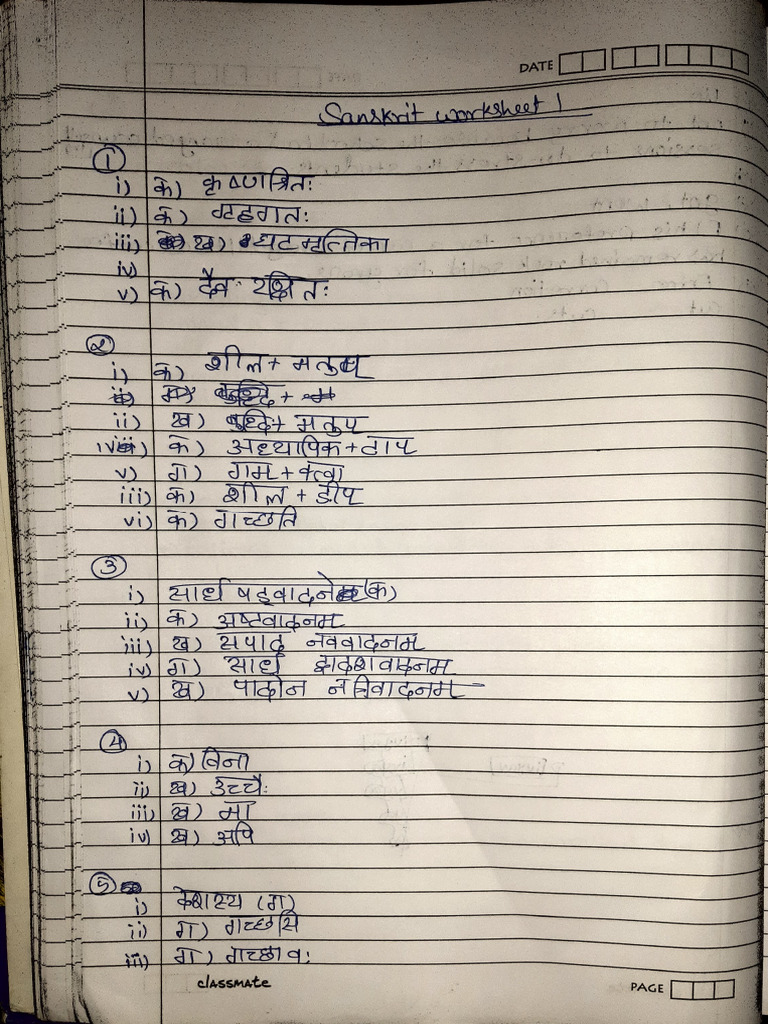 DATE
Sanskrit worksheet 1
①
i) क) कृष्णश्रितः
ii) क) गृहगतः
iii) ख) घटमृत्तिका
iv)
v) क) दैव रक्षितः
②
i) क) शील + मतुप
ii) ख) बुध्दि + मतुप
iv) क) अध्यापिक + टाप
v) ग) गम + क्त्वा
iii) क) शील + डीप
vi) क) गच्छति
③
i) सार्ध षड्वादने (क)
ii) क) अष्टवादनम
iii) ख) सपाद नववादनम
iv) ग) सार्ध द्वादशवादनम
v) ख) पादोन
④
i) क) विना
ii) ख) उच्चैः
iii) ख) मा
iv) ख) अपि
⑤
i) केशस्य (ग)
ii) ग) गच्छसि
iii) ग) गच्छावः
classmate
PAGE